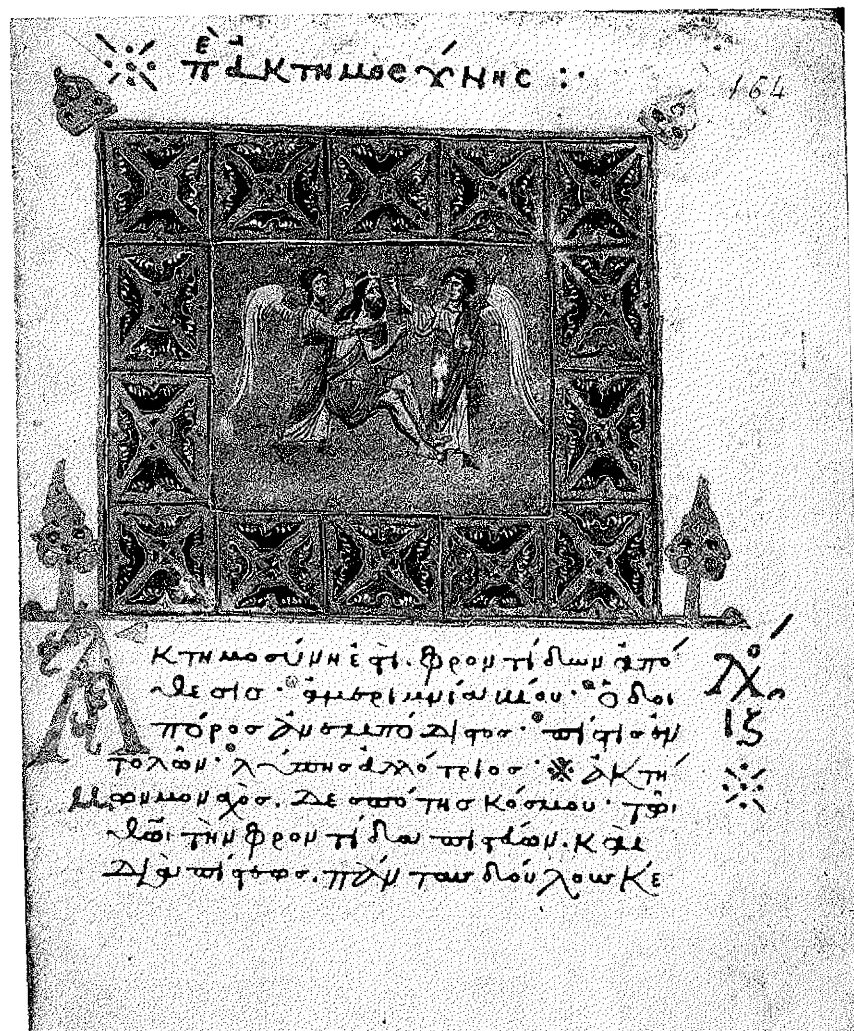 πὲ ἀκτημοσύνης :·
164
Ἀκτημοσύνη ἐστὶ. φροντίδων ἀπό
θεσις· ἀμεριμνία βίου· ὁδοι
πόρος ἀνεμπόδιστος· πίστις ἐν
τολῶν· λύπης ἀλλότριος· ※ ἀκτή
μων μοναχὸς. δεσπότης κόσμου· τῶι
θῶι τὴν φροντίδα πιστεύων. καὶ
διὰ πίστεως. πάντας δούλους κε
λό
ιζ